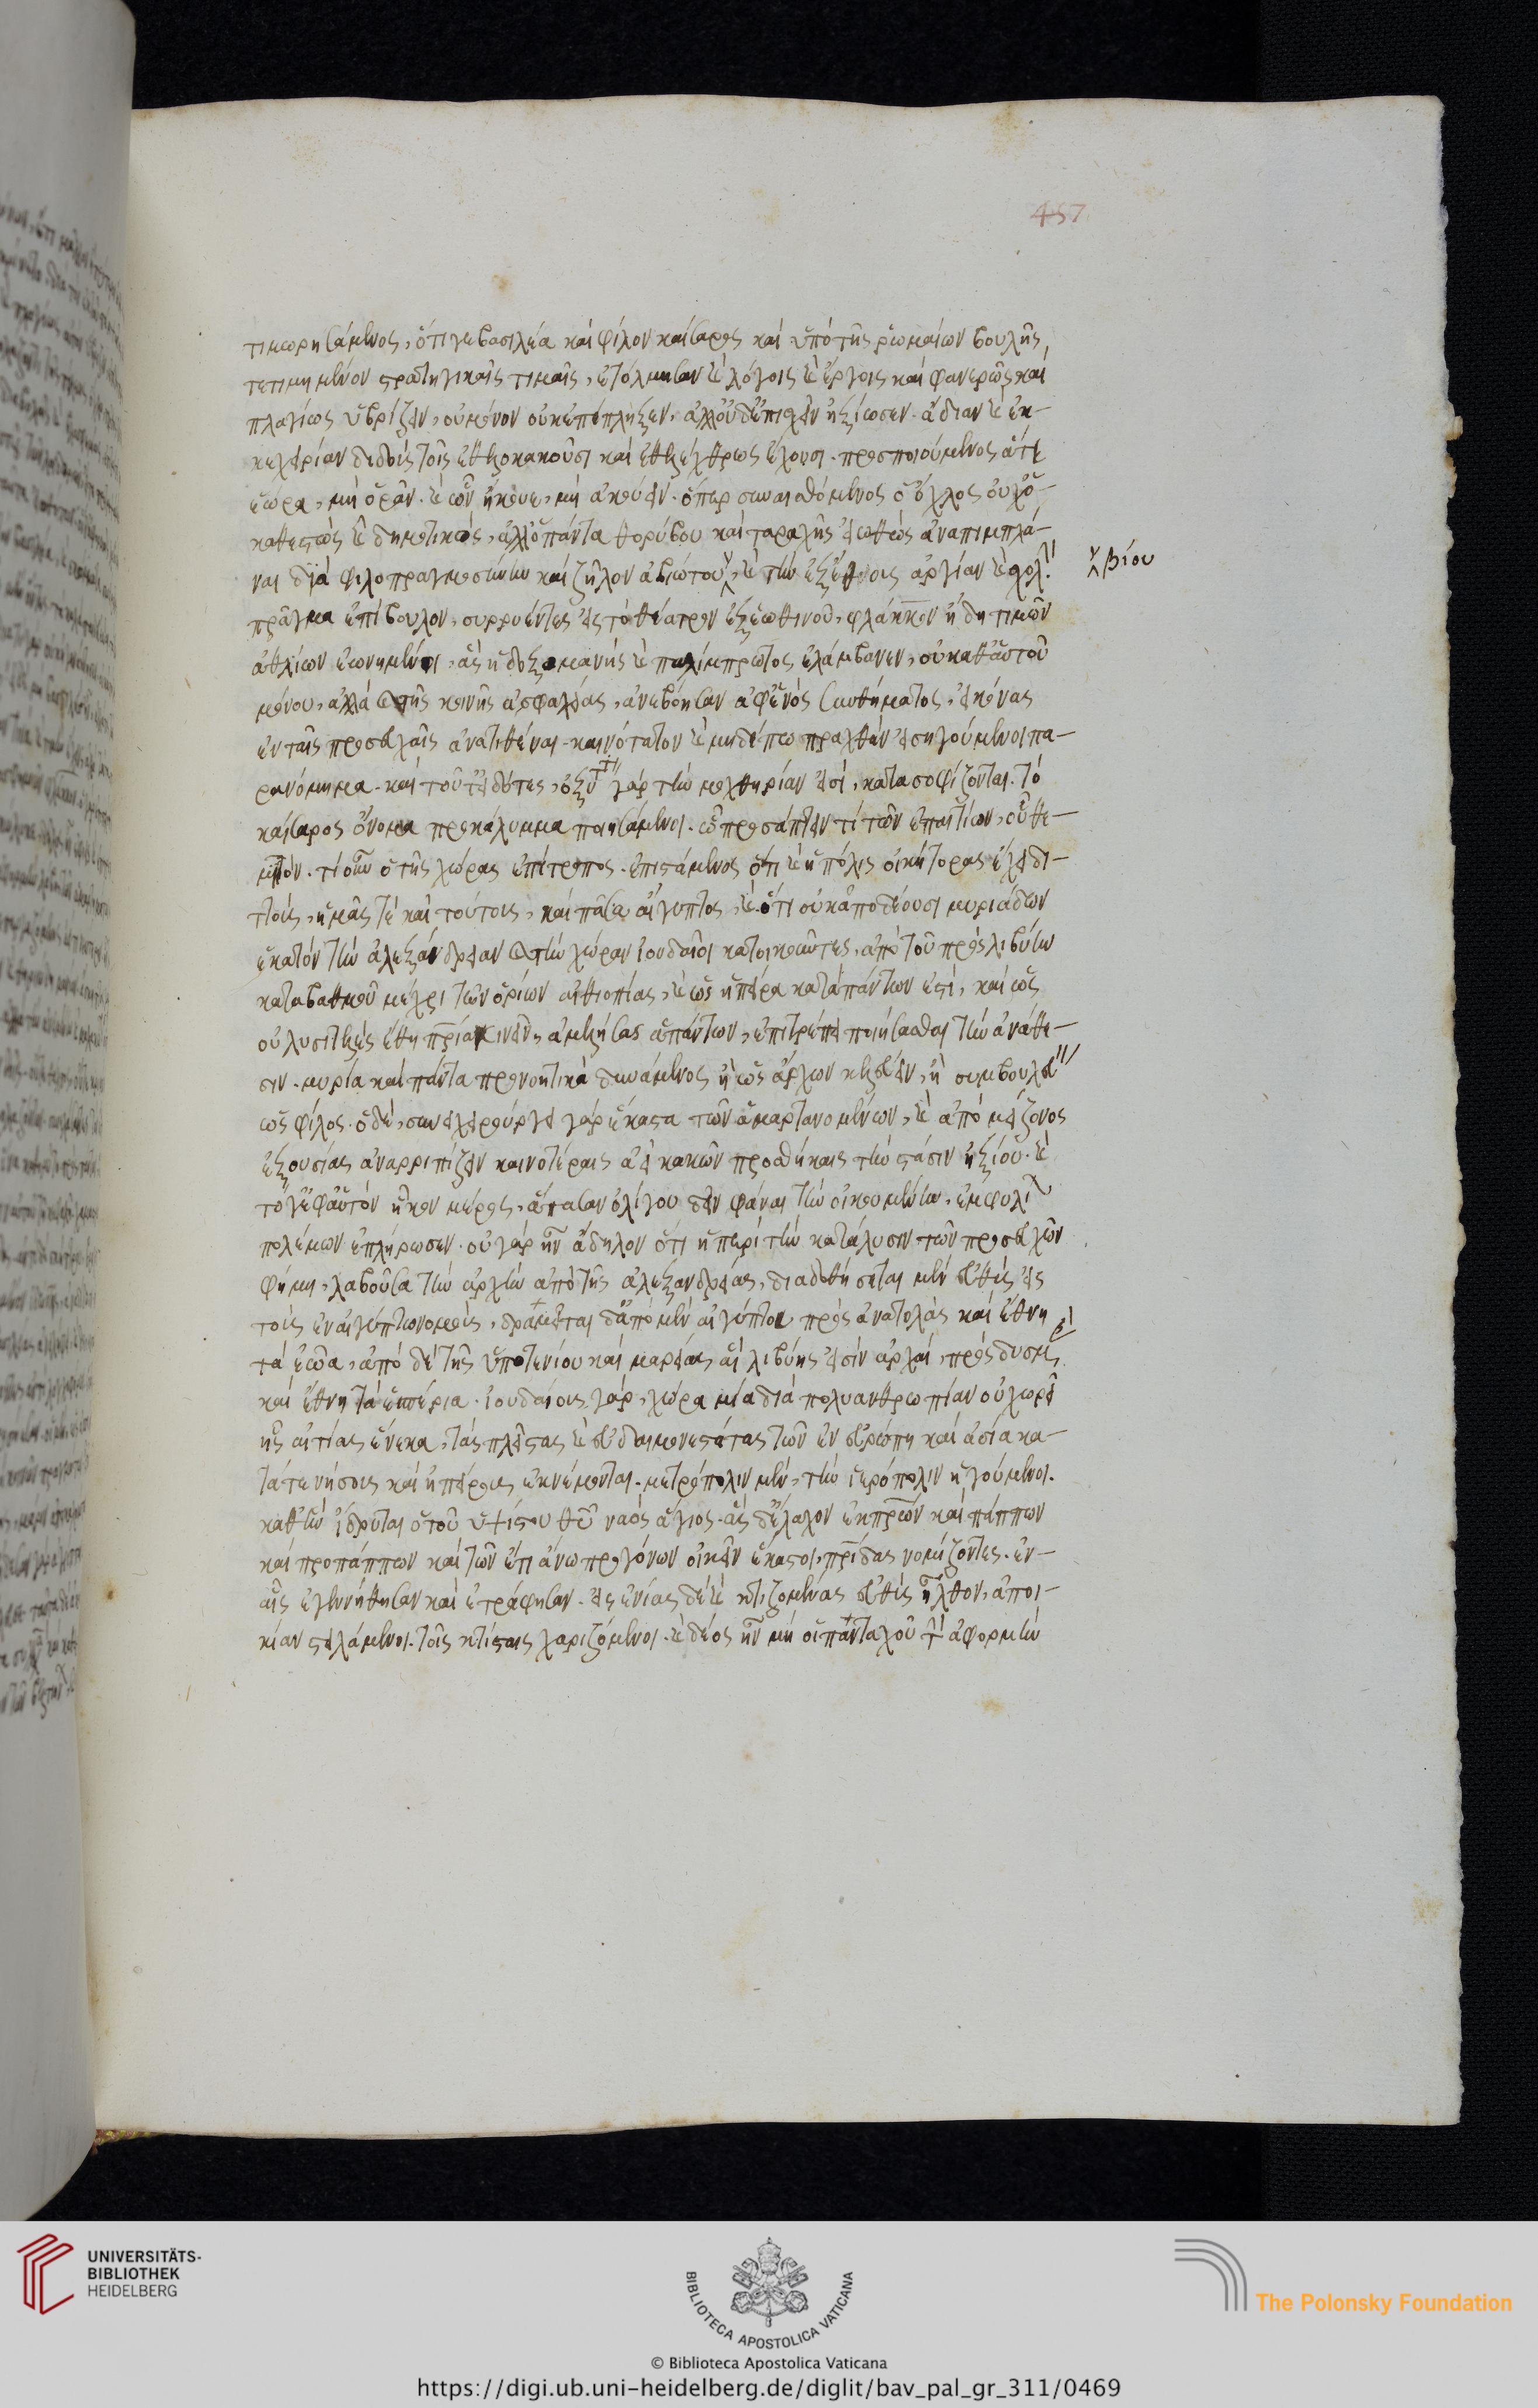 457
τιμωρησάμενος, ὅτι γε βασιλέα καὶ φίλον καίσαρος καὶ ὑπὸ τῆς ῥωμαίων βουλῆς
τετιμημένον στρατηγικαῖς τιμαῖς, ἐτόλμησαν ἐν λόγοις καὶ ἔργοις καὶ φανερῶς καὶ
πλαγίως ὑβρίζειν, οὐ μόνον οὐκ ἐπέπληξεν, ἀλλ' οὐδ' ἐπισχεῖν ἠξίωσεν. ἄδειαν καὶ ἐκ-
κεχειρίαν διδοὺς τοῖς ἐθελοκακοῦσι καὶ ἐθελέχθρως ἔχουσι. προσποιούμενος ἅ τε
ἑώρα, μὴ ὁρᾶν. καὶ ὧν ἤκουε, μὴ ἀκούειν. ὅπερ συναισθόμενος ὁ ὄχλος οὐχ ὁ
καθεστὼς καὶ δημοτικὸς, ἀλλ' ὁ πάντα θορύβου καὶ ταραχῆς εἰωθὼς ἀναπιμπλά-
ναι διὰ φιλοπραγμοσύνην καὶ ζῆλον ἀβιώτου, καὶ τὴν ἐξ ἔθους ἀργίαν καὶ σχολ
βίου
πρᾶγμα ἐπίβουλον, συρρυέντες εἰς τὸ θέατρον ἐξ ἑωθινοῦ, φλάκκον ἤδη τιμῶν
ἀθλίων ἐωνημένοι, ἃς ἡ δοξομανὴς καὶ παλίμπρατος ἐλάμβανεν, οὐ καθ' αὑτοῦ
μόνου, ἀλλὰ καὶ τῆς κοινῆς ἀσφαλείας, ἀνεβόησαν ἀφ' ἑνὸς συνθήματος, εἰκόνας
ἐν ταῖς προσευχαῖς ἀνατιθέναι. καινότατον καὶ μηδέπω πραχθὲν εἰσηγούμενοι πα-
ρανόμημα. καὶ τοῦτ' εἰδότες, ὀξύτ γὰρ τὴν μοχθηρίαν εἰσὶ, κατασοφίζονται. τὸ
καίσαρος ὄνομα προκάλυμμα ποιησάμενοι. ᾧ προσάπτειν τὶ τῶν ἐπαιτίων, οὐ θε-
μιτόν. τί οὖν ὁ τῆς χώρας ἐπίτροπος. ἐπιστάμενος ὅτι καὶ ἡ πόλις οἰκήτορας ἔχει δι-
ττοὺς, ἡμᾶς τε καὶ τούτους, καὶ πᾶσα αἴγυπτος, καὶ ὅτι οὐκ ἀποδέουσι μυριάδων
ἑκατὸν τὴν ἀλεξάνδρειαν καὶ τὴν χώραν ἰουδαῖοι κατοικοῦντες, ἀπὸ τοῦ πρὸς λιβύην
καταβαθμοῦ μέχρι τῶν ὁρίων αἰθιοπίας, καὶ ὡς ἡ πεῖρα κατὰ πάντων ἐστὶ, καὶ ὡς
οὐ λυσιτελὲς ἔθη πρια κινεῖν, ἀμελήσας ἁπάντων, ἐπιτρέπει ποιήσασθαι τὴν ἀνάθε-
σιν. μυρία καὶ πάντα προνοητικὰ δυνάμενος ἢ ὡς ἄρχων κελεύειν, ἢ συμβουλεύ
ὡς φίλος. ὁ δὲ, συνεχειρούργει γὰρ ἕκαστα τῶν ἁμαρτανομένων, καὶ ἀπὸ μείζονος
ἐξουσίας ἀναρριπίζειν καινοτέραις ἀεὶ κακῶν προσθήκαις τὴν στάσιν ἠξίου. καὶ
τό γε ἐφ' αὑτὸν ἧκον μέρος, ἅπασαν ὀλίγου δεῖν φάναι τὴν οἰκουμένην, ἐμφυλί
πολέμων ἐπλήρωσεν. οὐ γὰρ ἦν ἄδηλον ὅτι ἡ περὶ τὴν κατάλυσιν τῶν προσευχῶν
φήμη, λαβοῦσα τὴν ἀρχὴν ἀπὸ τῆς ἀλεξανδρείας, διαδοθήσεται μὲν εὐθὺς εἰς
τοὺς ἐν αἰγύπτῳ νομοὺς, δραμεῖται δ' ἀπὸ μὲν αἰγύπτου πρὸς ἀνατολὰς καὶ ἔθνη
τὰ ἑῶα, ἀπὸ δὲ τῆς ὑποταινίου καὶ μαρείας, αἳ λιβύης εἰσὶν ἀρχαὶ, πρὸς δυσμ
καὶ ἔθνη τὰ ἑσπέρια. ἰουδαίους γὰρ, χώρα μία διὰ πολυανθρωπίαν οὐ χωρεῖ
ἧς αἰτίας ἕνεκα, τὰς πλείστας καὶ εὐδαιμονεστάτας τῶν ἐν εὐρώπῃ καὶ ἀσίᾳ κα-
τά τε νήσους καὶ ἠπείρους ἐκνέμονται. μητρόπολιν μὲν, τὴν ἱερόπολιν ἡγούμενοι.
καθ' ἣν ἵδρυται ὁ τοῦ ὑψίστου θυ ναὸς ἅγιος. ἃς δ' ἔλαχον ἐκ πρων καὶ πάππων
καὶ προπάππων καὶ τῶν ἔτι ἄνω προγόνων οἰκεῖν ἕκαστοι, πρίδας νομίζοντες. ἐν
αἷς ἐγεννήθησαν καὶ ἐτράφησαν. εἰς ἐνίας δὲ καὶ κτιζομένας εὐθὺς ἦλθον, ἀποι-
κίαν στειλάμενοι. τοῖς κτίσταις χαριζόμενοι. καὶ δέος ἦν μὴ οἱ πανταχοῦ τ ἀφορμὴν
UNIVERSITÄTS-
BIBLIOTHEK
HEIDELBERG
BIBLIOTECA APOSTOLICA VATICANA
The Polonsky Foundation
© Biblioteca Apostolica Vaticana
https://digi.ub.uni-heidelberg.de/diglit/bav_pal_gr_311/0469